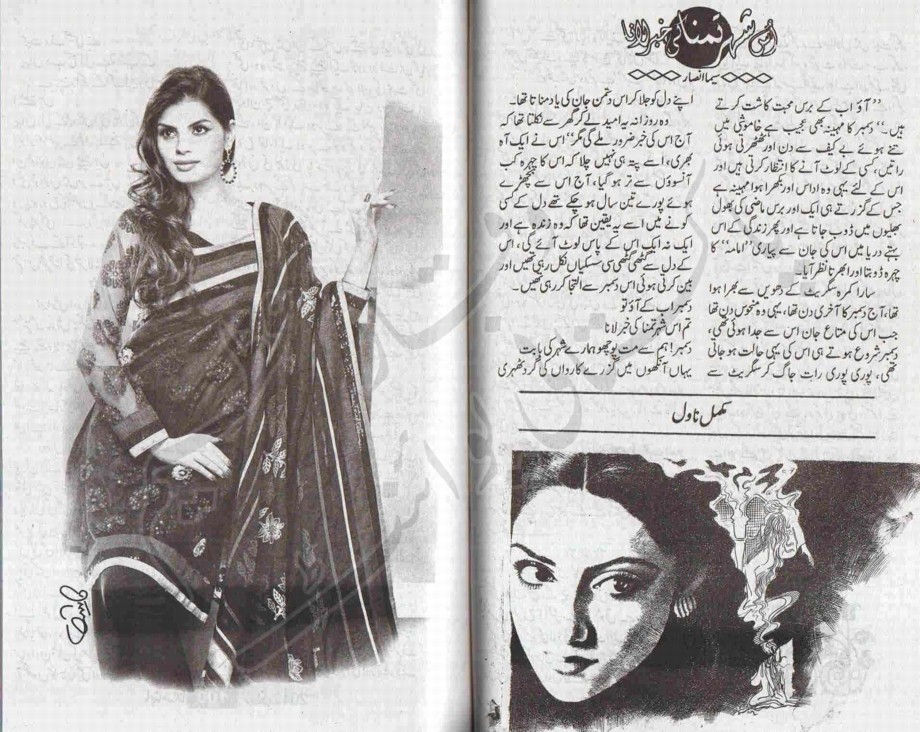 اس شہر تمنا کی خبر لانا
سیما انصار
’’آؤ اب کے برس محبت کاشت کرتے
ہیں۔‘‘ دسمبر کا مہینہ بھی عجیب ہے خاموشی میں
جتنے ہوئے بے کیف سے دن اور ٹھٹھرتی ہوئی
راتیں، کسی کے لوٹ آنے کا انتظار کرتی ہیں اور
اس کے لئے یہی وہ اداس اور بکھرا ہوا مہینہ ہے
جس کے گزرتے ہی ایک اور برس ماضی کی بھول
بھلیوں میں ڈوب جاتا ہے اور پھر زندگی کے اس
بہتے دریا میں اس کی جان سے پیاری ’’امامہ‘‘ کا
چہرہ ڈوبتا اور ابھرتا نظر آیا۔
سارا کمرہ سگریٹ کے دھویں سے بھرا ہوا
تھا، آج دسمبر کا آخری دن تھا، یہی وہ منحوس دن تھا
جب اس کی متاع جان اس سے جدا ہوئی تھی،
دسمبر شروع ہوتے ہی اس کی یہی حالت ہو جاتی
تھی، پوری پوری رات جاگ کر سگریٹ سے
اپنے دل کو جلا کر اس دشمن جان کی یاد مناتا تھا۔
وہ روزانہ یہ امید لے کر گھر سے نکلتا تھا کہ
آج اس کی خبر ضرور ملے گی مگر‘‘ اس نے ایک آہ
بھری، اسے پتہ ہی نہیں چلا کہ اس کا چہرہ کب
آنسوؤں سے تر ہو گیا، آج اس سے بچھڑے
ہوئے پورے تین سال ہو چکے تھے دل کے کسی
کونے میں اسے یہ یقین تھا کہ وہ زندہ ہے اور
ایک نہ ایک اس کے پاس لوٹ آئے گی، اس
کے دل سے گھٹی گھٹی سی سسکیاں نکل رہی تھیں اور
بین کرتی ہوئی اس دسمبر سے التجا کر رہی تھیں۔
دسمبر اب کے آؤ تو
تم اس شہر تمنا کی خبر لانا
دسمبر! ہم سے مت پوچھو ہمارے شہر کی بابت
یہاں آنکھوں میں گزرے کارواں کی گرد ٹھہری
مکمل ناول